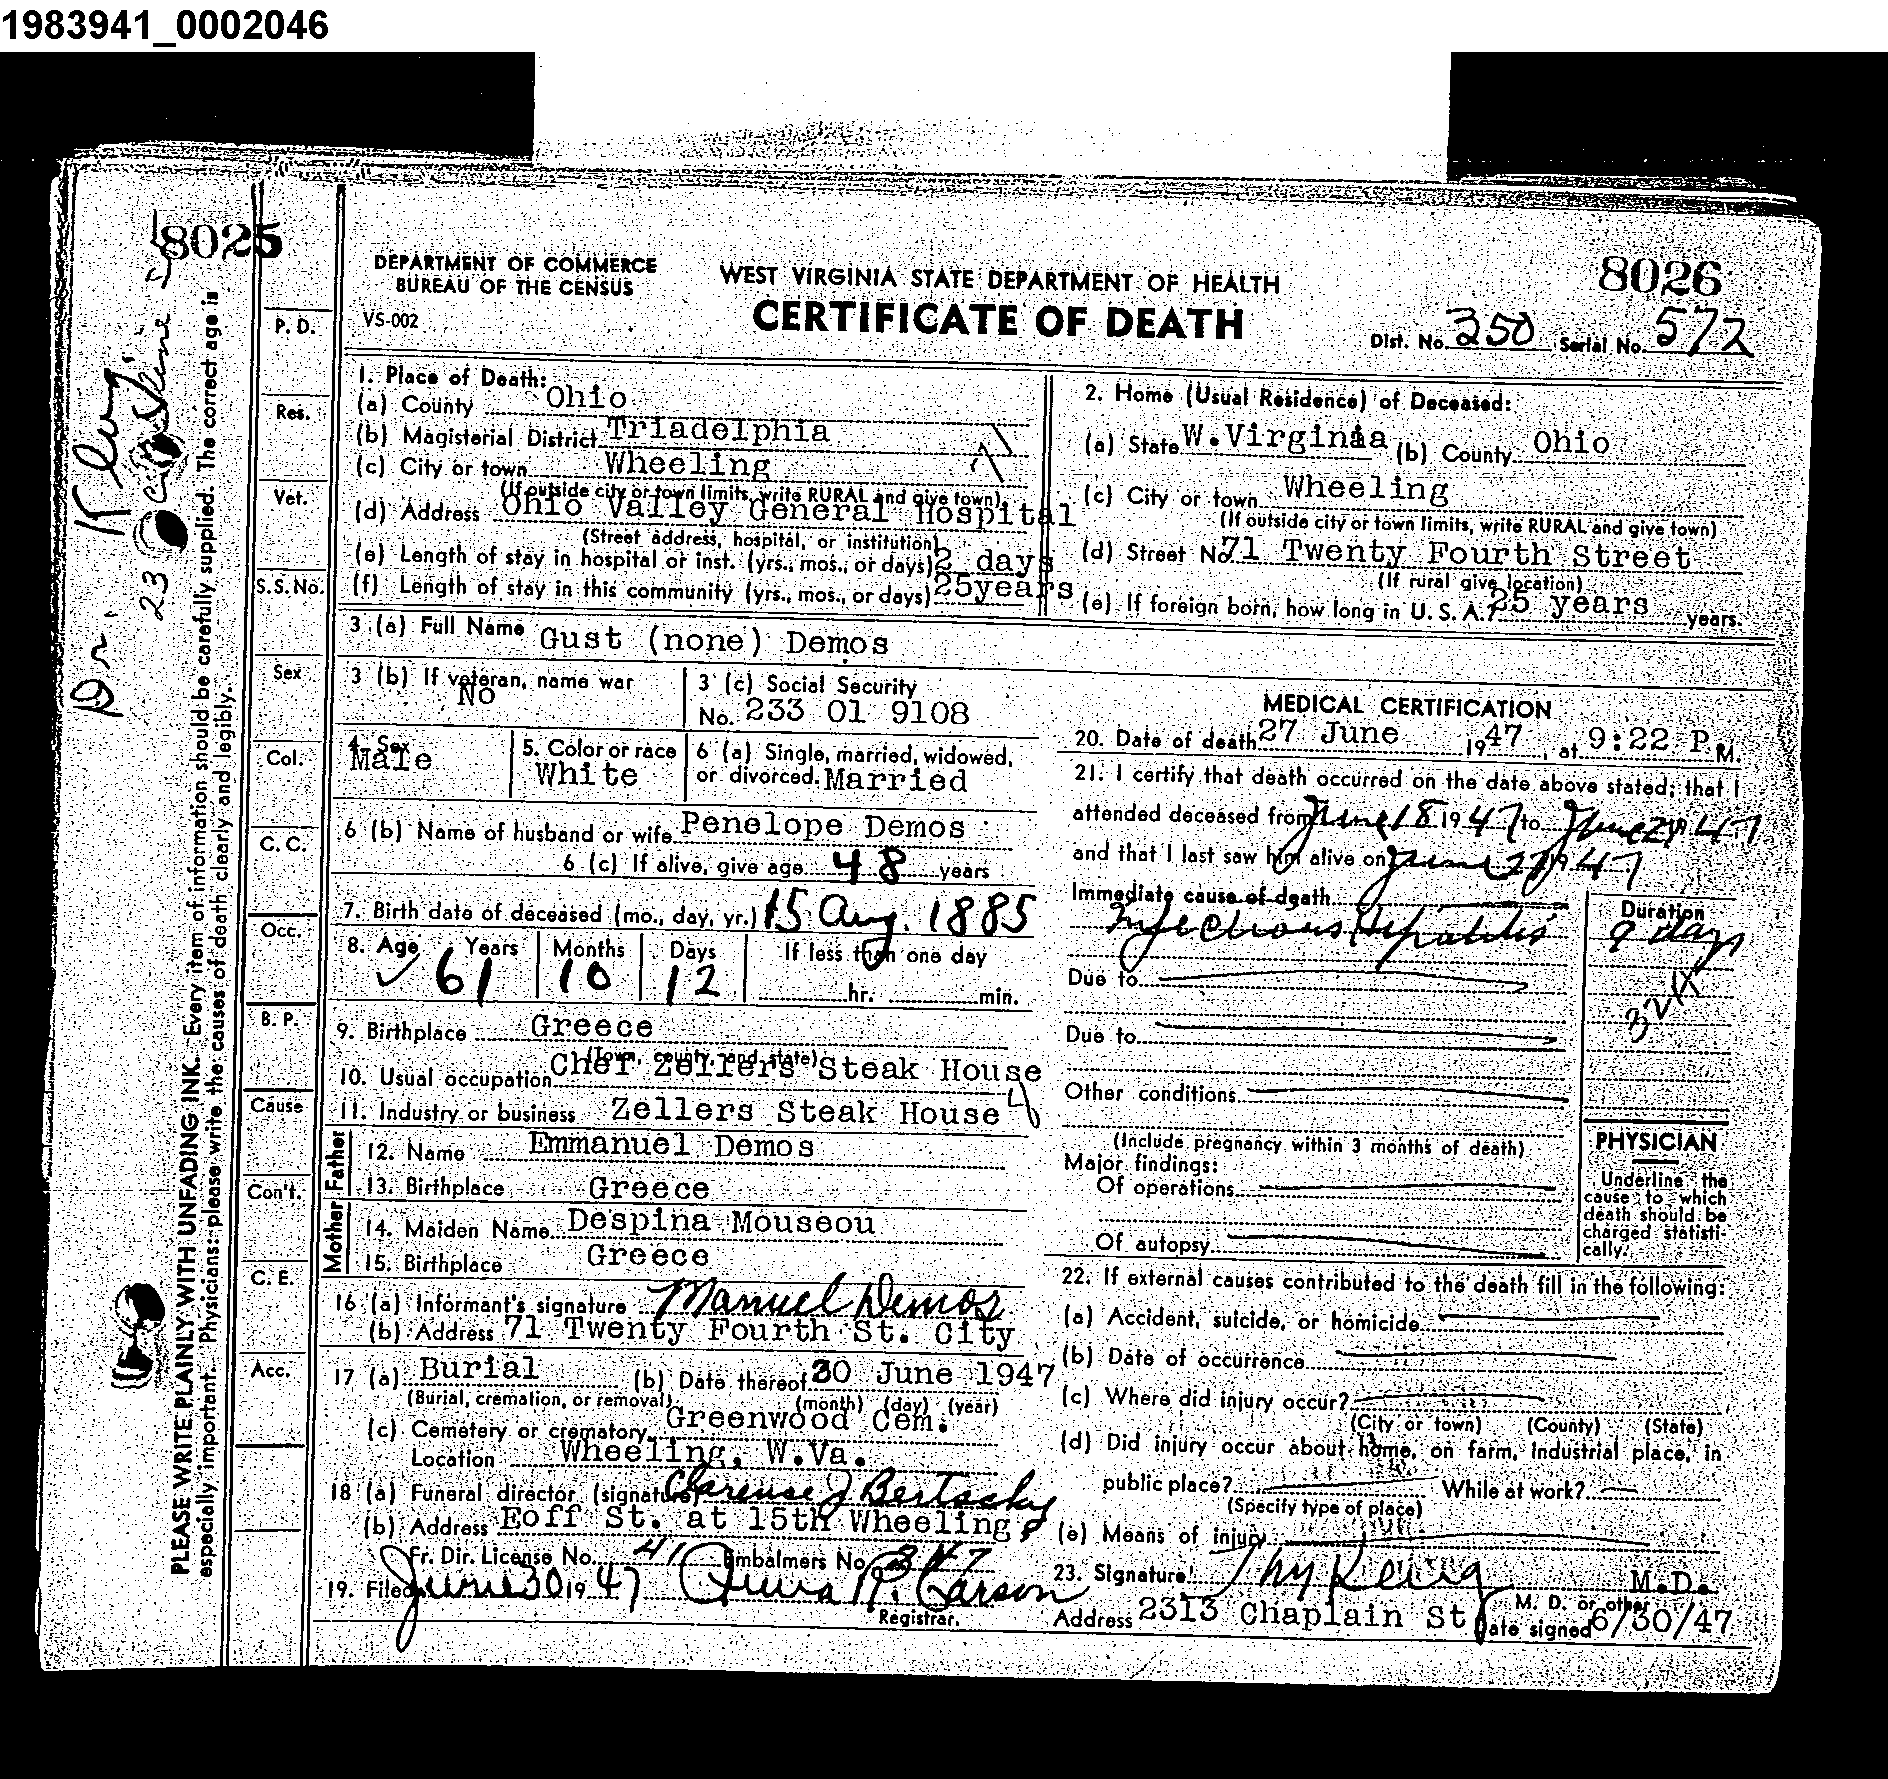 1983941_0002046
8025
8026
DEPARTMENT OF COMMERCE
BUREAU OF THE CENSUS
VS-002
WEST VIRGINIA STATE DEPARTMENT OF HEALTH
CERTIFICATE OF DEATH
Dist. No. 350 Serial No. 572
PLEASE WRITE PLAINLY WITH UNFADING INK. Every item of information should be carefully supplied. The correct age is
especially important. Physicians: please write the causes of death clearly and legibly.
Dr.
23
P. D.
Res.
Vet.
S.S. No.
Sex
Col.
C. C.
Occ.
B. P.
Cause
Con't.
C. E.
Acc.
1. Place of Death:
(a) County Ohio
(b) Magisterial District Triadelphia
(c) City or town Wheeling
(If outside city or town limits, write RURAL and give town)
(d) Address Ohio Valley General Hospital
(Street address, hospital, or institution)
(e) Length of stay in hospital or inst. (yrs., mos., or days) 2 days
(f) Length of stay in this community (yrs., mos., or days) 25years
2. Home (Usual Residence) of Deceased:
(a) State W.Virginia (b) County Ohio
(c) City or town Wheeling
(If outside city or town limits, write RURAL and give town)
(d) Street No. 71 Twenty Fourth Street
(If rural give location)
(e) If foreign born, how long in U. S. A.? 25 years years.
3 (a) Full Name Gust (none) Demos
3 (b) If veteran, name war
No
3 (c) Social Security
No. 233 01 9108
4. Sex
Male
5. Color or race
White
6 (a) Single, married, widowed,
or divorced. Married
6 (b) Name of husband or wife Penelope Demos
6 (c) If alive, give age 48 years
7. Birth date of deceased (mo., day, yr.) 15 Aug. 1885
8. Age Years Months Days If less than one day
61 10 12 hr. min.
9. Birthplace Greece
(Town, county, and state)
10. Usual occupation Chef Zellers Steak House
11. Industry or business Zellers Steak House
Father
12. Name Emmanuel Demos
13. Birthplace Greece
Mother
14. Maiden Name Despina Mouseou
15. Birthplace Greece
16 (a) Informant's signature Manuel Demos
(b) Address 71 Twenty Fourth St. City
17 (a) Burial (b) Date thereof 30 June 1947
(Burial, cremation, or removal) (month) (day) (year)
(c) Cemetery or crematory Greenwood Cem.
Location Wheeling, W.Va.
18 (a) Funeral director (signature) Clarence J Bertschy
(b) Address Eoff St. at 15th Wheeling
Fr. Dir. License No. 41 Embalmers No. 347
19. Filed June 30 1947 Carson
Registrar.
MEDICAL CERTIFICATION
20. Date of death 27 June 1947, at 9:22 P M.
21. I certify that death occurred on the date above stated; that I
attended deceased from June 18 1947 to June 27 1947
and that I last saw him alive on June 27 1947
Immediate cause of death
Infectious Hepatitis
Duration
9 days
Due to
Due to
Other conditions
(Include pregnancy within 3 months of death)
Major findings:
Of operations
Of autopsy
PHYSICIAN
Underline the
cause to which
death should be
charged statisti-
cally.
22. If external causes contributed to the death fill in the following:
(a) Accident, suicide, or homicide
(b) Date of occurrence
(c) Where did injury occur?
(City or town) (County) (State)
(d) Did injury occur about home, on farm, industrial place, in
public place? While at work?
(Specify type of place)
(e) Means of injury
23. Signature M.D.
M. D. or other
Address 2313 Chaplain St Date signed 6/30/47